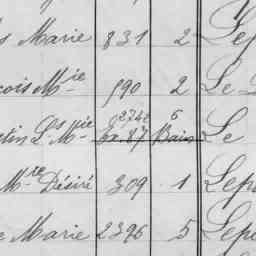 s Marie 831 2 Lep
çois Mie 590 2 Le
2342 6
tin Ls Mie Ex. 87 Bain Le
Mre Désiré 309 1 Lepe
e Marie 2396 5 Lepe